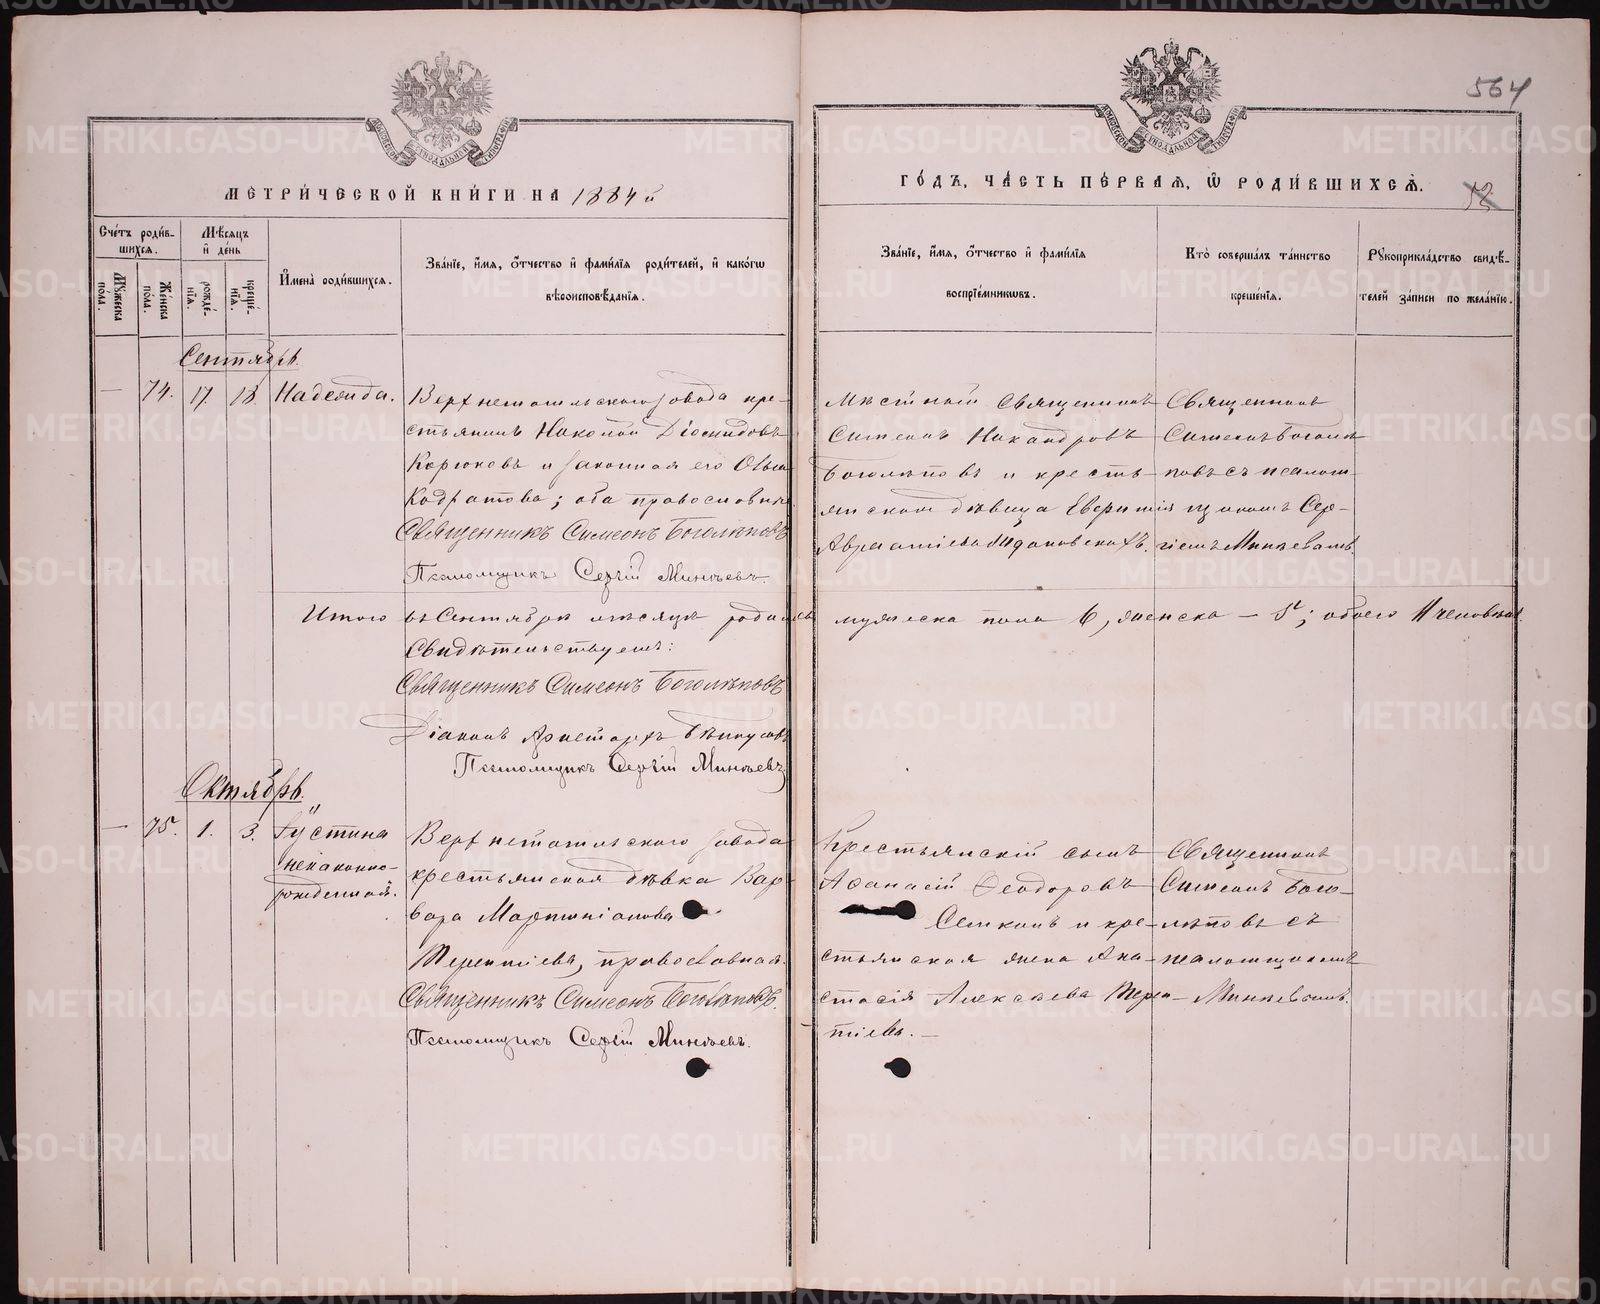 564
МЕТРИ́ЧЕСКОЙ КНИ́ГИ НА 1884 й
ГО́ДЪ, ЧА́СТЬ ПЕ́РВАЯ, Ѡ РОДИ́ВШИХСЯ.
52
Сче́тъ роди́в-
шихся.
Мѣ́сяцъ
и҆ де́нь
Му́жеска
по́ла.
Же́нска
по́ла.
рожде́-
нїѧ.
креще́-
нїѧ.
И҆мена̀ роди́вшихся.
Зва́нїе, и҆́мя, ѻ҆́тчество и҆ фами́лїя роди́телей, и҆ како́гѡ
вѣроисповѣ́данїя.
Зва́нїе, и҆́мя, ѻ҆́тчество и҆ фами́лїя
воспрїе́мниковъ.
Кто̀ соверша́лъ та́инство
креще́нїя.
Рꙋкоприкла́дство свидѣ́-
телей за́писи по жела́нїю.
Сентябрь.
— 74. 17. 18. Надежда.
Верхнетагильского завода кре-
стьянинъ Николай Діомидовъ
Корюковъ и законная его Ольга
Кодратова; оба православные
Священникъ Симеонъ Боголѣповъ
Псаломщикъ Сергій Минѣевъ.
Мѣстный Священникъ
Симеонъ Никандровъ
Боголѣповъ и кресть-
янская дѣвица Евпраксія
Авраамова
Священникъ
Симеонъ Боголѣ-
повъ съ псалом-
щикомъ Сер-
гіемъ Минѣевымъ
Итого въ Сентябрѣ мѣсяцѣ родилось мужеска пола 6, женска — 5; обоего 11 человѣкъ.
Свидѣтельствуемъ:
Священникъ Симеонъ Боголѣповъ
Діаконъ Аристархъ
Псаломщикъ Сергій Минѣевъ
Октябрь.
— 75. 1. 3. Іустина
незаконно-
рожденная.
Верхнетагильского завода
крестьянская дѣвка Вар-
вара Мартиніанова
Терентіева, православная.
Священникъ Симеонъ Боголѣповъ.
Псаломщикъ Сергій Минѣевъ.
Крестьянскій сынъ
Аѳанасій Ѳеодоровъ
Семкинъ и кре-
стьянская жена Ана-
стасія Алексѣева Терен-
тіева. —
Священникъ
Симеонъ Бого-
лѣповъ съ
псаломщикомъ
Минѣевымъ.
METRIKI.GASO-URAL.RU